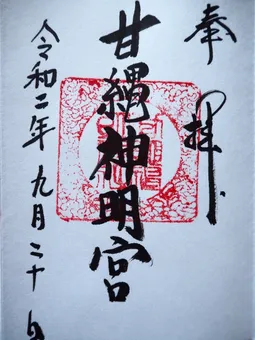 奉拝
甘縄神明宮
令和二年九月二十日